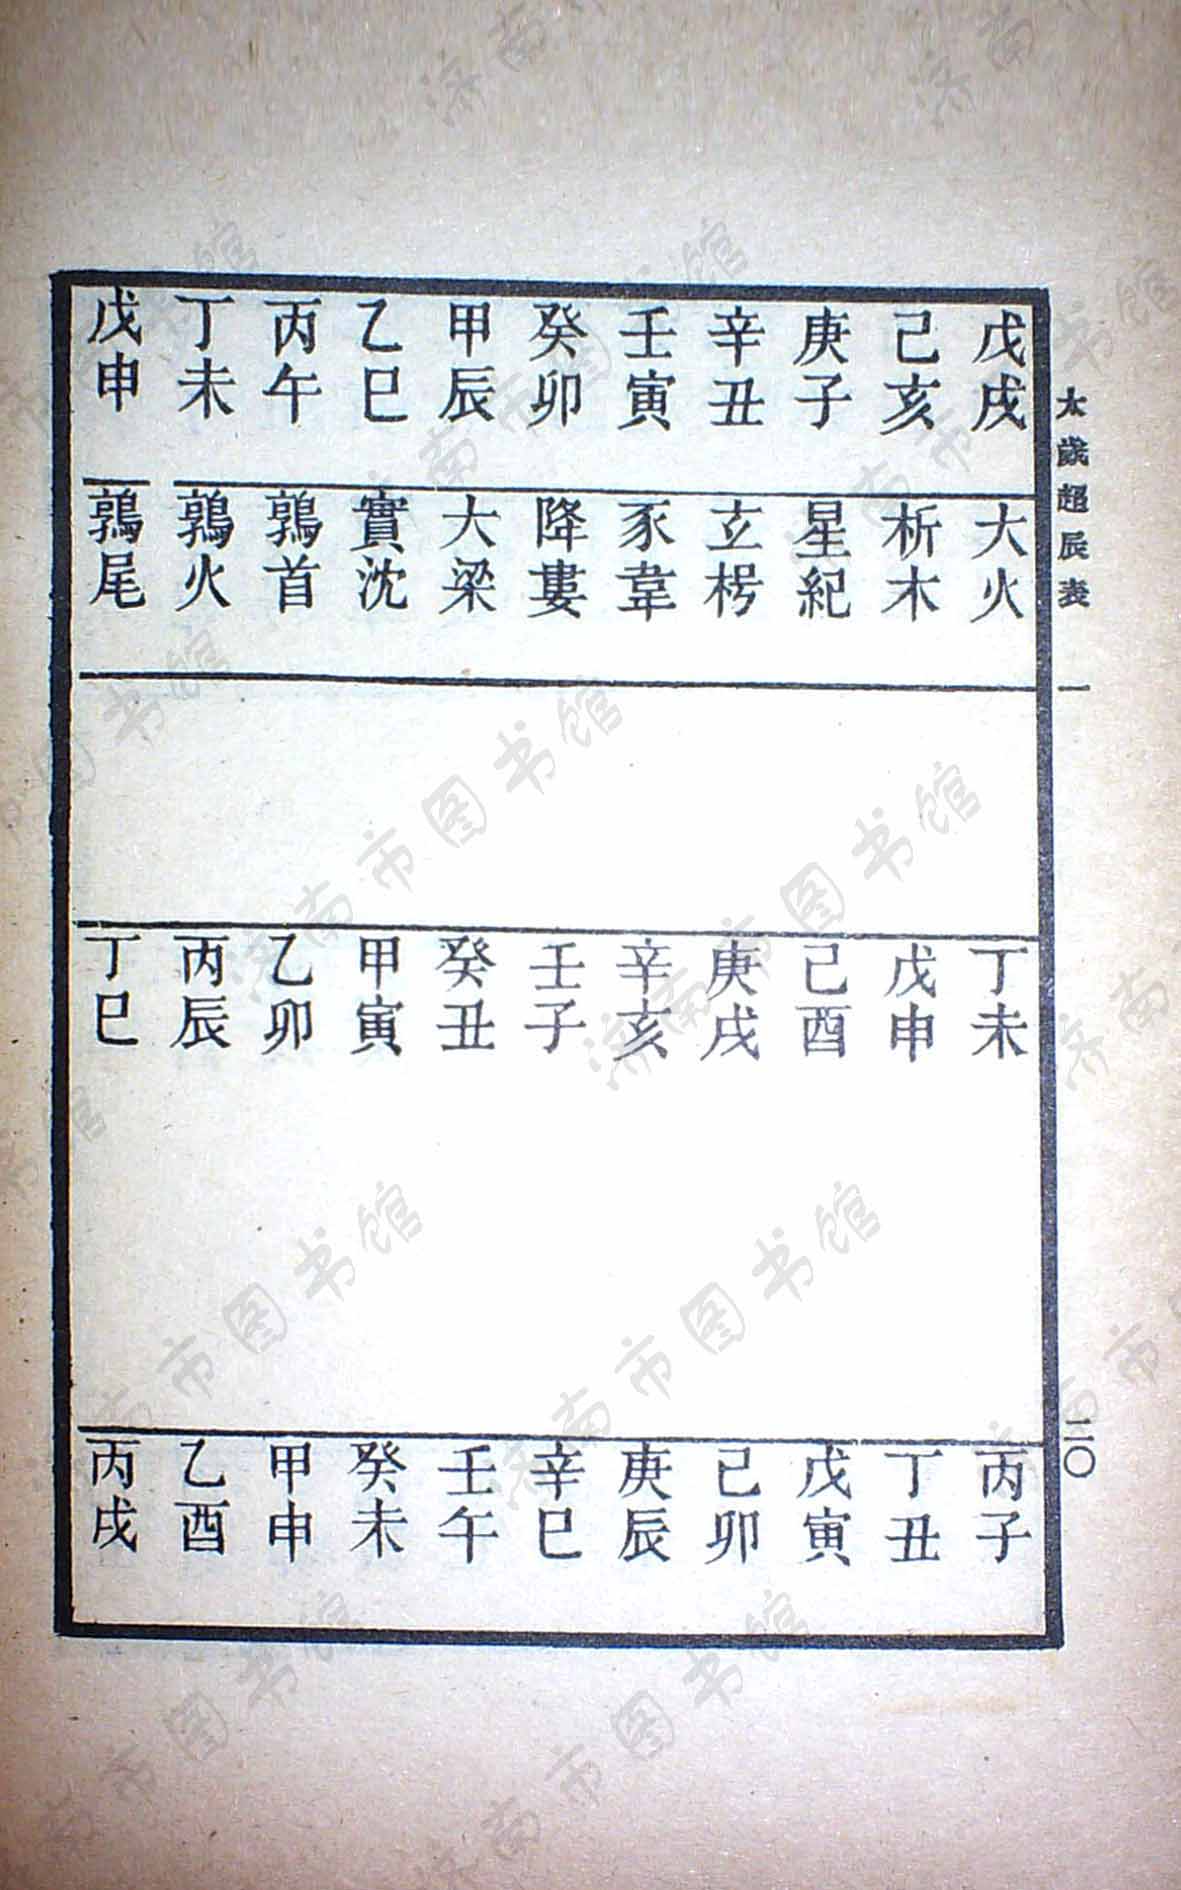 太歲超辰表 一 二〇
戊戌 己亥 庚子 辛丑 壬寅 癸卯 甲辰 乙巳 丙午 丁未 戊申
大火 析木 星紀 玄枵 豕韋 降婁 大梁 實沈 鶉首 鶉火 鶉尾
丁未 戊申 己酉 庚戌 辛亥 壬子 癸丑 甲寅 乙卯 丙辰 丁巳
丙子 丁丑 戊寅 己卯 庚辰 辛巳 壬午 癸未 甲申 乙酉 丙戌
济南市图书馆